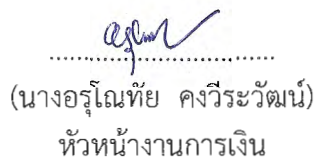 (นางอรุโณทัย คงวีระวัฒน์)
หัวหน้างานการเงิน